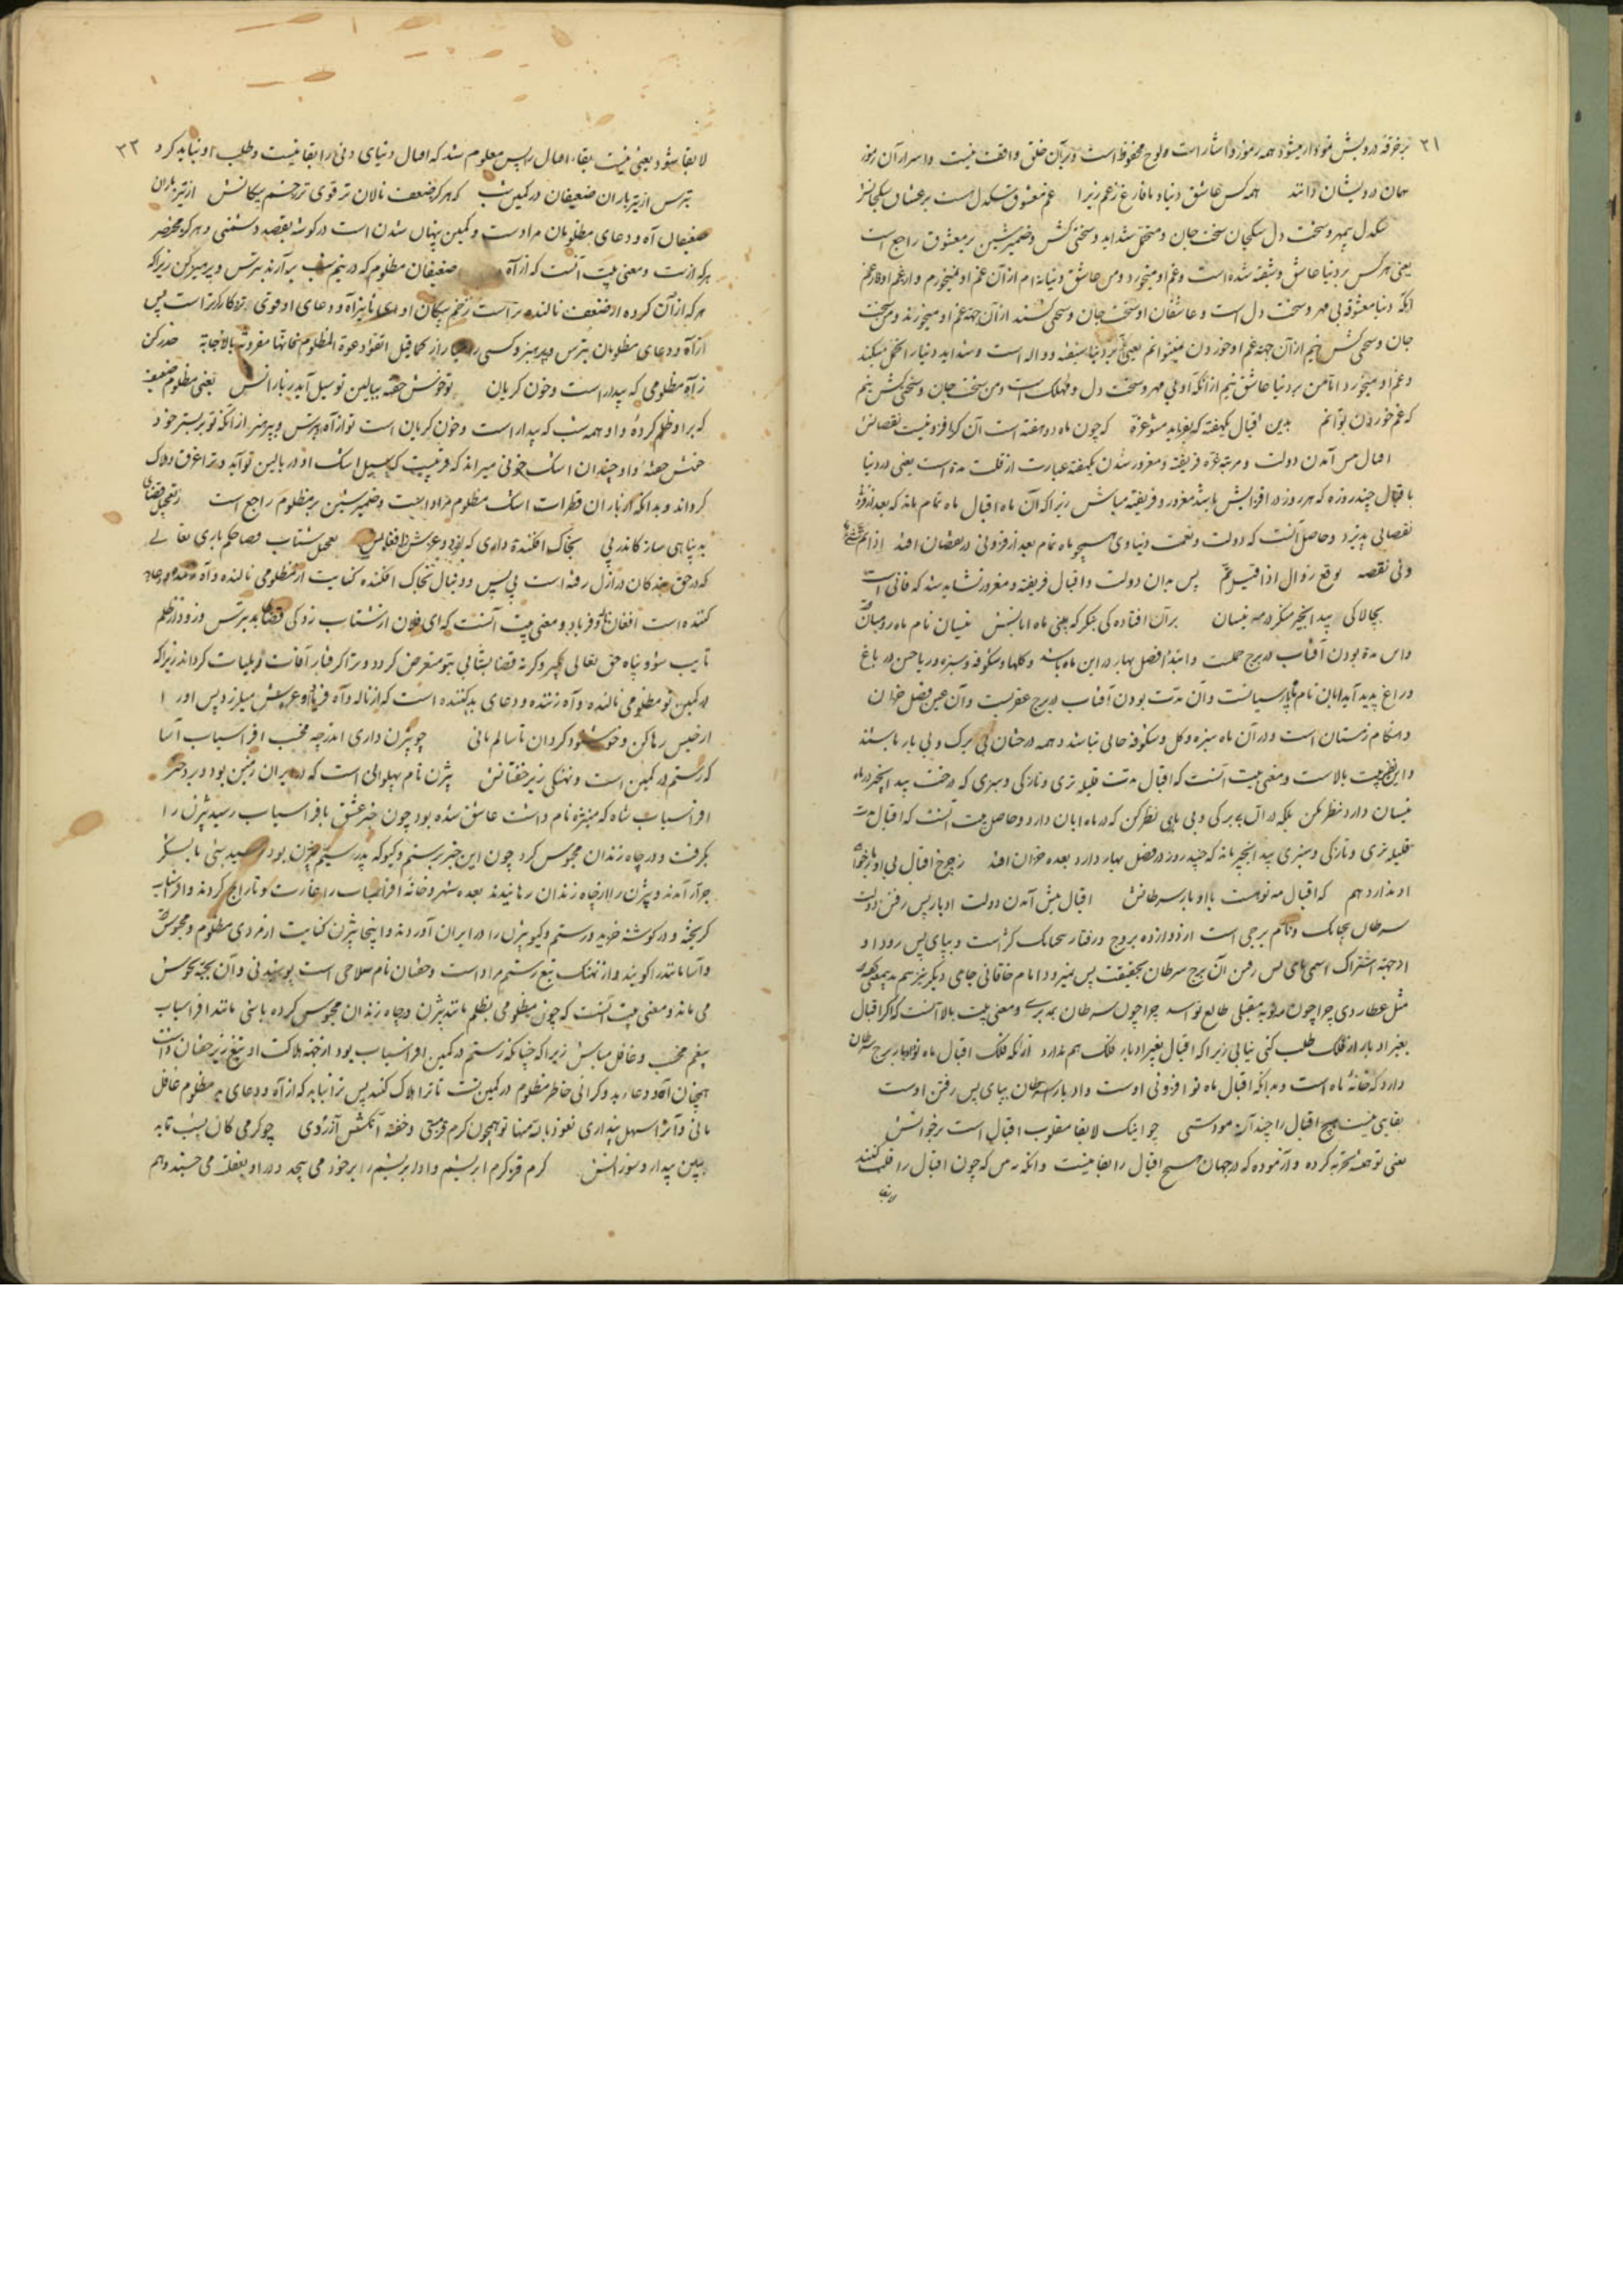 بر خرقه درویش نمودار میشود همه رموز و اشارات است ولوح محفوظ است و بر آن خلق واقف نیست و اسرار آن رموز
همان درویشان دانند همه کس عاشق دنیا و ما فارغ ز غم زیرا غم معشوق سنگدل است بر عشاق سگجانش
سنگدل بیمهر و سخت دل سگجان سخت جان و متحمل شداید و سختی کش و ضمیر شین بر معشوق راجع است
یعنی هر کس بر دنیا عاشق و شیفته شده است و غم او میخورد و من عاشق دنیا نه ام از آن غم او نمیخورم و از غم او فارغم
آنکه دنیا معشوقه بی مهر و سخت دل است و عاشقان او سخت جان و سختی کشند از آن جهة غم او میخورند و من سخت
جان و سختی کش نیم از آن جهة غم او خوردن نمیتوانم یعنی بر دنیا شیفته و واله است و شداید دنیا را تحمل میکند
و غم او میخورد اما من بر دنیا عاشق نیم از آنکه او بی مهر و سخت دل و مهلک است و من سخت جان و سختی کش نیم
که غم خوردن بتوانم بدین اقبال یکهفته که بفزاید مشو غره که چون ماه دو هفته است آن کز افزونیست نقصانش
اقبال پیش آمدن دولت و مرتبه غره فریفته و مغرور شدن یکهفته عبارت از قلت مدة است یعنی در دنیا
با اقبال چند روزه که هر روز در افزایش باشد مغرور و فریفته مباش زیرا که آن ماه اقبال ماه تمام ماند که بعد از فزونی
نقصانی پذیرد و حاصل آنست که دولت و نعمت دنیاوی همچو ماه تمام بعد از فزونی در نقصان افتد اذا تم
دنی نقصه توقع زوال اذا قیل تم پس بدان دولت و اقبال فریفته و مغرور نشاید شد که فانی است
بچالاکی بید انجیر منگر در مه نیسان بر آن افتادگی بنگر که بینی ماه آبانش نیسان نام ماه رومیان
و آن مدة بودن آفتاب در برج حملست و ابتداء فصل بهار در این ماه باشد و گلها و شکوفه و سبزه و ریاحین در باغ
و راغ پدید آید آبان نام ماه پارسیانست و آن مدت بودن آفتاب در برج عقربست و آن عین فصل خزان
و هنگام زمستان است و در آن ماه سبزه و گل و شکوفه حالی نباشد و همه درختان بی برگ و بی بار باشند
و این نظیر بیت بالاست و معنی بیت آنست که اقبال مدت قلیله تری و نازکی و سبزی که درخت بید انجیر در ماه
نیسان دارد نظر مکن بلکه در آن بی برگی و بی باری نظر کن که در ماه آبان دارد و حاصل بیت آنست که اقبال مدت
قلیله تری و نازکی و سبزی بید انجیر ماند که چند روز در فصل بهار دارد بعده خزان افتد ز چرخ اقبال بی ادبار خواهی
او ندارد هم که اقبال مه نو هست با ادبار سرطانش اقبال پیش آمدن دولت ادبار پس رفتن دولت
سرطان پنجپایک و نام برجی است از دوازده بروج و رفتار پنجپایک کژ است و بپای پس رود او
از جهة اشتراک اسمی پای پس رفتن آن برج سرطان بحقیقت پس نمیرود امام خاقانی جامی دیگر نیز هم بدینمعنی گفته
مثل عطاردی چرا چون مه نو به مقبلی طالع تو اسد چرا چون سرطان بمدبری و معنی بیت بالا آنست که اگر اقبال
بغیر ادبار از فلک طلب کنی نیابی زیرا که اقبال بغیر ادبار فلک هم ندارد از آنکه فلک اقبال ماه نو با ادبار برج سرطان
دارد که خانهٔ ماه است و بدانکه اقبال ماه نو افزونی اوست و ادبار سرطان بپای پس رفتن اوست
بقایی نیست هیچ اقبال را چند آزمودستی چو اینک لابقا مقلوب اقبال است بر خوانش
یعنی تو همیشه تجربه کرده و آزموده که در جهان هیچ اقبال را بقا نیست و آنکه نه بس که چون اقبال را قلب کنند
لابقا
لابقا شود یعنی نیست بقاء اقبال را پس معلوم شد که اقبال دنیای دنی را بقا نیست و طلب او نباید کرد
بترس از تیر باران ضعیفان در کمین شب که هر کو ضعف نالان تر قوی تر زخم پیکانش از تیر باران
ضعیفان آه و دعای مظلومان مرادست و کمین پنهان شدن است در گوشه بقصد دشمنی و هر کو مختصر
هر که از اوست و معنی بیت آنست که از آه ضعیفان مظلوم که در نیم شب بر آرند بترس و پرهیز کن زیرا که
هر که از آن گروه از ضعف نالنده تر است زخم پیکان او
از آه و دعای مظلومان بترس و بپرهیز و کسی را میازار کما قیل اتقوا دعوة المظلوم فانها مقرونة بالاجابة حذر کن
ز آه مظلومی که بیدار است و خون گریان تو خوش خفته ببالین تو سیل آید ز بارانش یعنی مظلوم ضعیف
که بر او ظلم کردهٔ و او همه شب که بیدار است و خون گریان است تو از آه او بترس و بپرهیز از آنکه تو بر بستر خود
خوش خفتهٔ و او چندان اشک خونی میراند که قریبست که سیل اشک او در بالین تو آید و ترا غرق و هلاک
گرداند و بدانکه از باران قطرات اشک مظلوم مراد است و ضمیر شین بر مظلوم راجع است ز تعجیل قضای
بد پناهی ساز کاندر پی بخاک افکندهٔ داری که لرزد عرش ز افغانش تعجیل شتاب قضا حکم باری تعالی
که در حق بندگان در ازل رفته است پی پس و دنبال بخاک افکنده کنایت از مظلومی نالنده و آه
کننده است افغان آه و فریاد و معنی بیت آنست که ای فلان از شتاب زدگی قضاء بد بترس و زود از ظلم
تایب شو و پناه حق تعالی بگیر و گر نه قضا بشتابی بتو متعرض گردد و ترا گرفتار آفات و بلیات گرداند زیرا که
در کمین تو مظلومی نالنده و آه زننده و دعای بد کننده است که از ناله و آه و فریاد او عرش میلرزد پس او را
از حبس رها کن و خوشنود گردان تا سالم مانی چو بیژن داری اندر چه مخسب افراسیاب آسا
که رستم در کمین است و نهنگی زیر خفتانش بیژن نام پهلوانی است که در ایران زمین بود و بر دختر
افراسیاب شاه که منیژه نام داشت عاشق شده بود چون خبر عشق بافراسیاب رسید بیژن را
بگرفت و در چاه زندان محبوس کرد چون این خبر برستم و گیو که پدر بیژن بود رسید با لشکر
جرار آمدند و بیژن را از چاه زندان رهانیدند بعده شهر و خانهٔ افراسیاب را غارت و تاراج کردند و افراسیاب
گریخته و در گوشه خزید و رستم و گیو بیژن را در ایران آوردند و اینجا بیژن کنایت از مردی مظلوم و محبوس
و آسا مانند را گویند و از نهنگ تیغ رستم مراد است و خفتان نام سلاحی است پوشیدنی و آن بجبه جوشن
می ماند و معنی بیت آنست که چون مظلومی بظلم مانند بیژن در چاه زندان محبوس کرده باشی مانند افراسیاب
بیغم مخسب و غافل مباش زیرا که چنانکه رستم در کمین افراسیاب بود از جهة هلاکت او تیغ زیر خفتان داشت
همچنان آه و دعاء بد و گرانی خاطر مظلوم در کمین تست تا ترا هلاک کند پس ترا نباید که از آه و دعای بد مظلوم غافل
مانی و آنرا سهل پنداری نعوذ بالله منها تو همچون کرم قز مستی و خفته آنکش آزردی چو کرمی کان بشب تابد
ببین بیدار و سوزانش کرم قز کرم ابریشم و او ابریشم را بر خود می پیچد و در او بغفلت می خسپد و هم